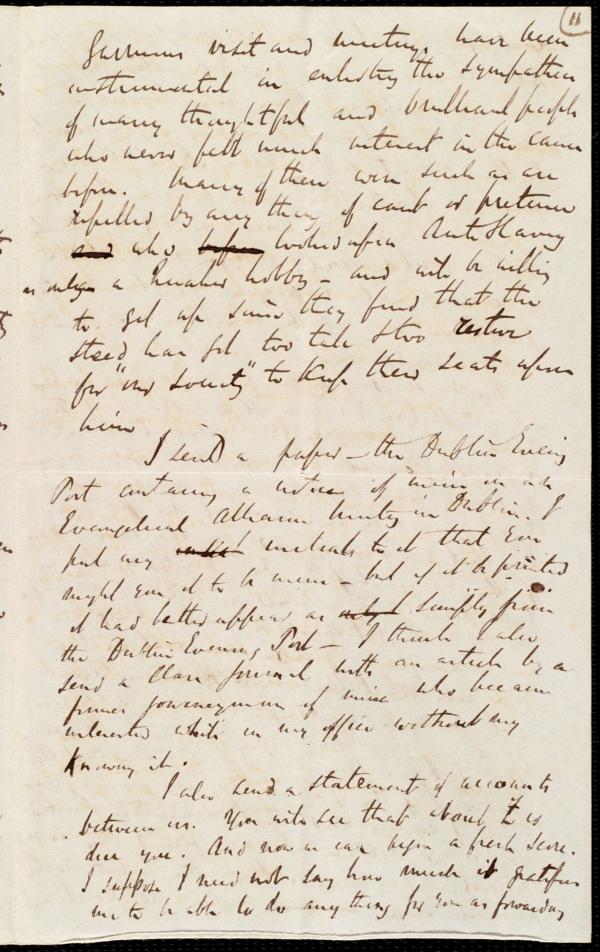 11
Garrisons visit and meetings, have been
instrumental in enlisting the sympathies
of many thoughtful and brilliant people
who never felt much interest in the cause
before. Many of them were such as are
repelled by any thing of cant or pretence
and who before looked upon Anti Slavery
as only a Quaker hobby - and will be willing
to get up since they find that the
steed has got too tall & too restive
for "our Society" to keep their seats upon
him
I send a paper - the Dublin Evening
Post containing a notice of mine on an
Evangelical Alliance Meeting in Dublin. I
put my initials to it that you
might know it to be mine - but if it be printed
it had better appear as simply from
the Dublin Evening Post - I think I also
send a Clare Journal with an article by a
former journeyman of mine who became
interested while in my office without my
knowing it.
I also send a statement of accounts
between us. You will see that about £ is
due you. And now we can begin a fresh score.
I suppose I need not say how much it gratifies
me to be able to do any thing for you as forwarding